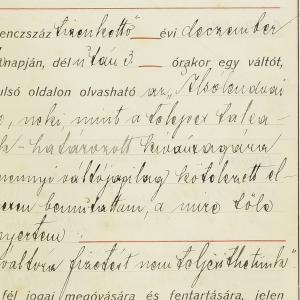 enczszáz tizenkettő évi deczember
napján, dél után 3 órakor egy váltót,
ulsó oldalon olvasható az „Alsólendvai
neki mint a
határozott kívánságára
mennyi váltójogilag kötelezett el-
bemutattam, a mire tőle
nyertem
váltóra fizetést nem teljesíthetünk"
fél jogai megóvására és fentartására, jelen